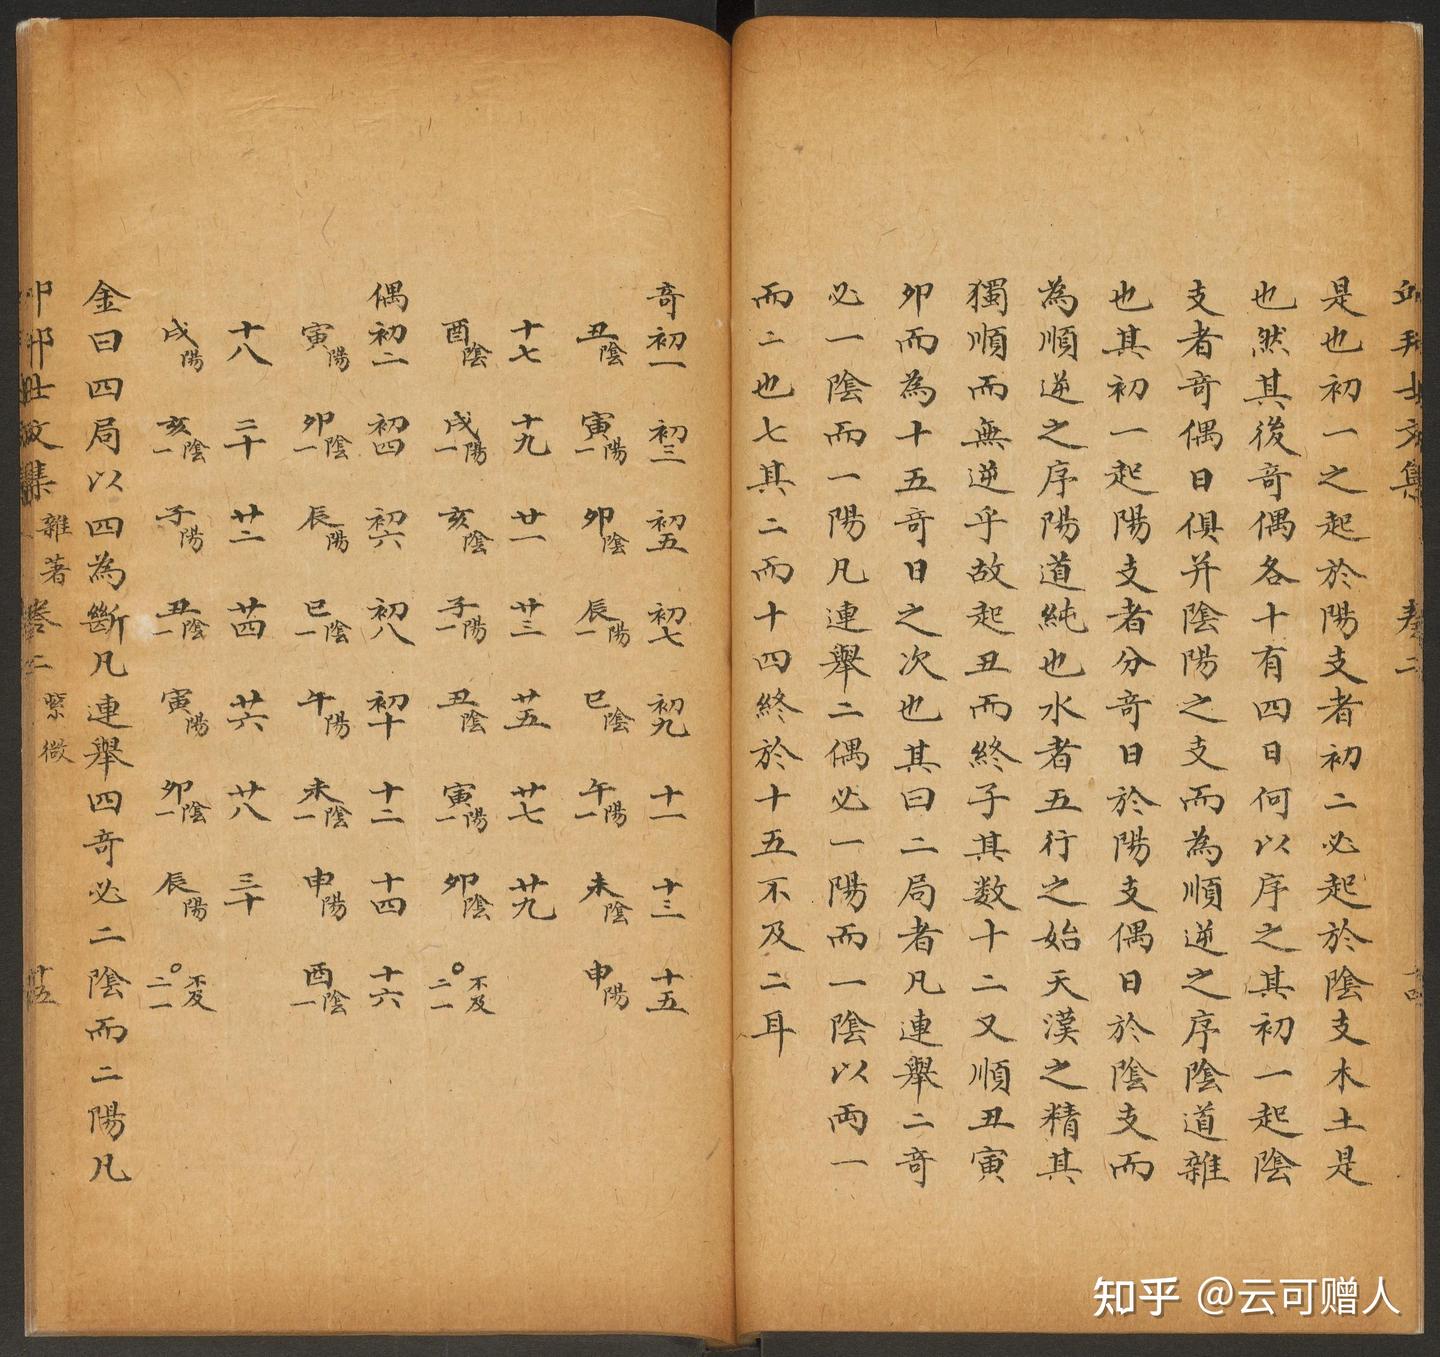 文集 卷二
是也初一之起於陽支者初二必起於陰支木土是
也然其後奇偶各十有四日何以序之其初一起陰
支者奇偶日俱并陰陽之支而為順逆之序陰道雜
也其初一起陽支者分奇日於陽支偶日於陰支而
為順逆之序陽道純也水者五行之始天漢之精其
獨順而無逆乎故起丑而終子其数十二又順丑寅
卯而為十五奇日之次也其曰二局者凡連舉二奇
必一陰而一陽凡連舉二偶必一陽而一陰以両一
而二也七其二而十四終於十五不及二耳
奇初一 初三 初五 初七 初九 十一 十三 十五
丑陰 寅陽一 卯陰 辰陽一 巳陰 午陽一 未陰 申陽
十七 十九 廿一 廿三 廿五 廿七 廿九
酉陰 戌陽一 亥陰 子陽一 丑陰 寅陽一 卯陰 不及○二一
偶初二 初四 初六 初八 初十 十二 十四 十六
寅陽 卯陰一 辰陽 巳陰一 午陽 未陰一 申陽 酉陰一
十八 二十 廿二 廿四 廿六 廿八 三十
戌陽 亥陰一 子陽 丑陰一 寅陽 卯陰一 辰陽 不及○二一
金曰四局以四為斷凡連舉四奇必二陰而二陽凡
邱邦士文集 雜著 卷二 紫微 十五
知乎 @云可赠人